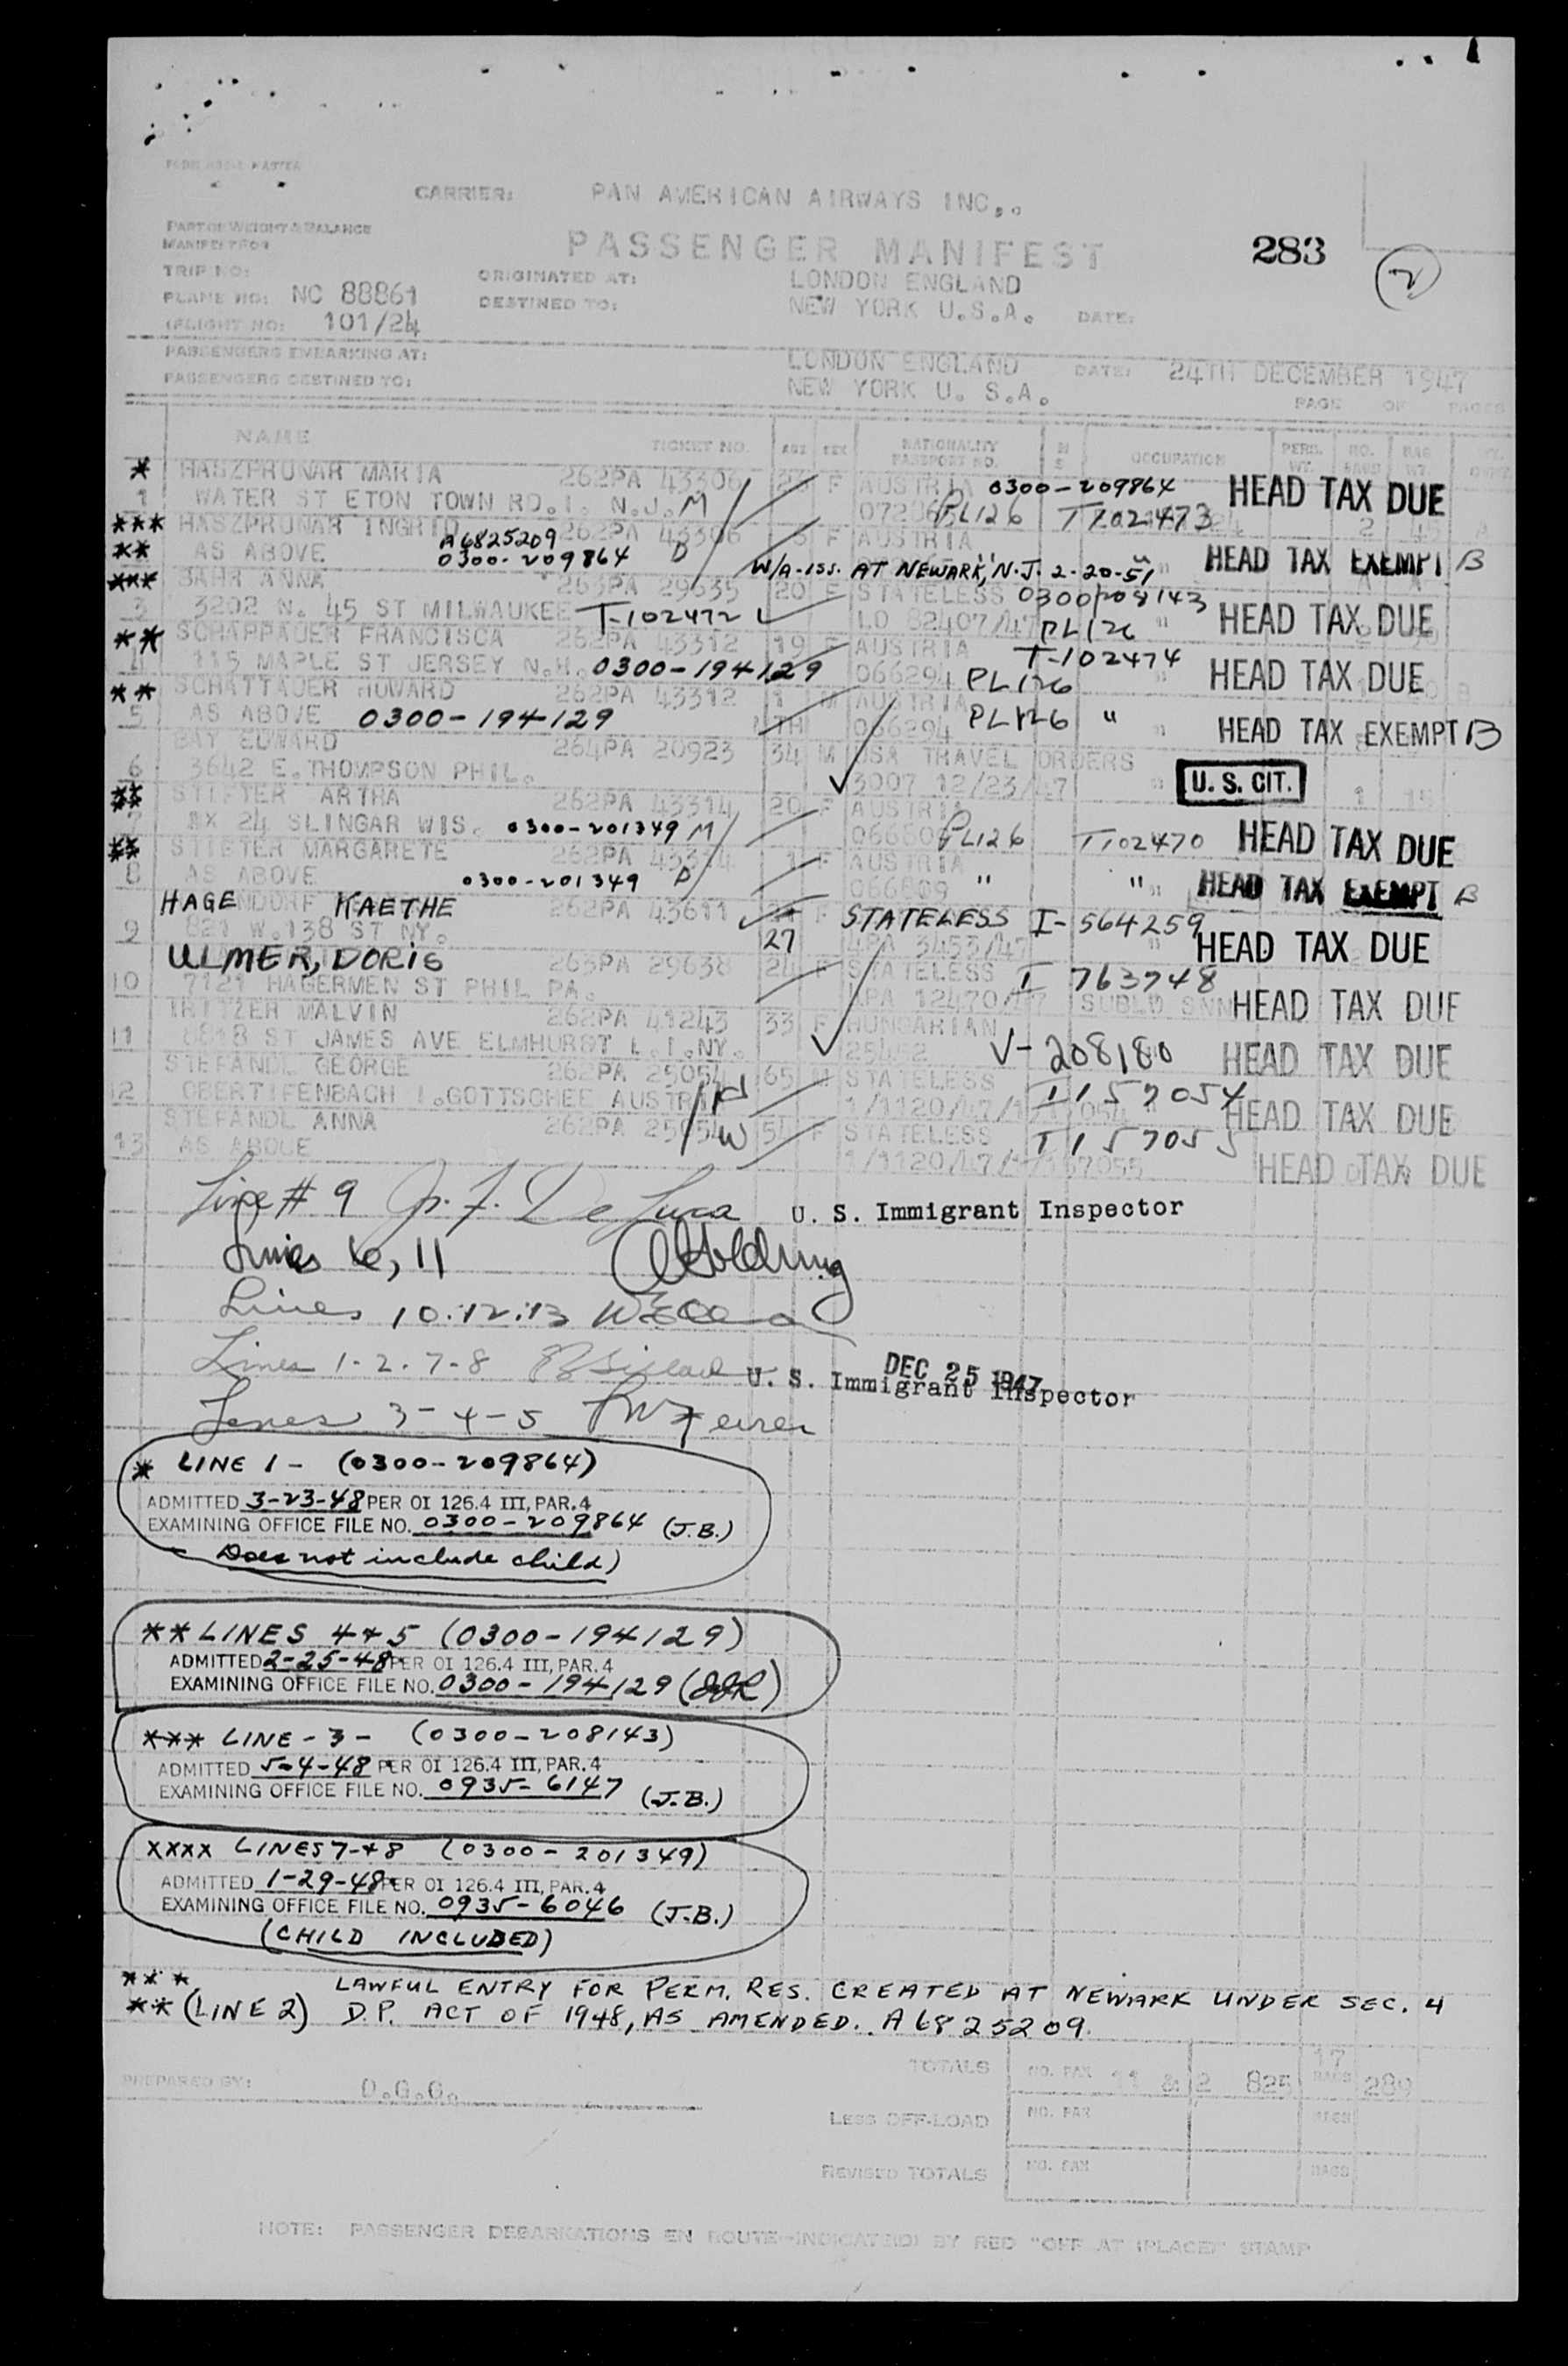 CARRIER: PAN AMERICAN AIRWAYS INC..
PART OF WEIGHT & BALANCE
MANIFEST FOR
PASSENGER MANIFEST
283
2
TRIP NO:
ORIGINATED AT: LONDON ENGLAND
PLANE NO: NC 88861
DESTINED TO: NEW YORK U.S.A. DATE:
FLIGHT NO: 101/24
PASSENGERS EMBARKING AT: LONDON ENGLAND DATE: 24TH DECEMBER 1947
PASSENGERS DESTINED TO: NEW YORK U. S.A.
PAGE OF PAGES
NAME TICKET NO. AGE SEX NATIONALITY PASSPORT NO. OCCUPATION PERS. WT. NO. BAGS BAG WT.
* HASZPRUNAR MARIA 262PA 43306 23 F AUSTRIA 0300-209864 HEAD TAX DUE
1 WATER ST ETON TOWN RD.1. N.J. M PL126 T1021473
*** HASZPRUNAR INGRID 262PA 43306 F AUSTRIA 2 45
A6825209
** AS ABOVE 0300-209864 D W/A-ISS. AT NEWARK, N.J. 2-20-51 HEAD TAX EXEMPT B
*** BAHR ANNA 263PA 29635 20 F STATELESS 0300/208143
3 3202 N. 45 ST MILWAUKEE T-102472 I.O 82407/47 PL126 " HEAD TAX DUE
** SCHAPPAUER FRANCISCA 262PA 43312 19 F AUSTRIA T-102474
4 115 MAPLE ST JERSEY N.H. 0300-194129 066294 PL126 " HEAD TAX DUE
** SCHATTAUER HOWARD 262PA 43312 1 M AUSTRIA
5 AS ABOVE 0300-194129 TH 066294 PL126 " HEAD TAX EXEMPT B
BAY EDWARD 264PA 20923 34 M USA TRAVEL ORDERS
6 3642 E. THOMPSON PHIL. 3007 12/23/47 " U. S. CIT. 1 15
** STIFTER ARTHA 262PA 43314 20 F AUSTRIA
7 BX 24 SLINGAR WIS. 0300-201349 M 066809 PL126 T102470 HEAD TAX DUE
** STIFTER MARGARETE 262PA 43314 1 F AUSTRIA
8 AS ABOVE 0300-201349 D 066809 " " HEAD TAX EXEMPT B
HAGENDORF KAETHE 262PA 43611 27 F STATELESS I-564259
9 821 W.138 ST NY. 4PA 3453/47 " HEAD TAX DUE
ULMER, DORIS 263PA 29638 24 F STATELESS I 763748
10 7121 HAGERMEN ST PHIL PA. 12470/47 HEAD TAX DUE
TRITZER MALVIN 262PA 41243 33 F HUNGARIAN
11 8818 ST JAMES AVE ELMHURST L.I.NY. 25452 V-208180 HEAD TAX DUE
STEFANDL GEORGE 262PA 25054 65 M STATELESS I157054
12 OBERTIFENBACH I.GOTTSCHEE AUSTRIA H 1/1120/47/ HEAD TAX DUE
STEFANDL ANNA 262PA 25054 W 54 F STATELESS I157055
13 AS ABOUE 1/1120/47/ 157055 HEAD TAX DUE
Line # 9 J. F. De Luca U. S. Immigrant Inspector
Lines 6, 11 Golding
Lines 10.12.13
Lines 1-2.7-8 U. S. Immigrant Inspector
DEC 25 1947
Lines 3-4-5
* LINE 1 - (0300-209864)
ADMITTED 3-23-48 PER OI 126.4 III, PAR. 4
EXAMINING OFFICE FILE NO. 0300-209864 (J.B.)
Does not include child)
** LINES 4+5 (0300-194129)
ADMITTED 2-25-48 PER OI 126.4 III, PAR. 4
EXAMINING OFFICE FILE NO. 0300-194129 (JJR)
*** LINE-3- (0300-208143)
ADMITTED 5-4-48 PER OI 126.4 III, PAR. 4
EXAMINING OFFICE FILE NO. 0935-6147 (J.B.)
XXXX LINES 7-+8 (0300-201349)
ADMITTED 1-29-48 PER OI 126.4 III, PAR. 4
EXAMINING OFFICE FILE NO. 0935-6046 (J.B.)
(CHILD INCLUDED)
*** LAWFUL ENTRY FOR PERM. RES. CREATED AT NEWARK UNDER SEC. 4
** (LINE 2) D.P. ACT OF 1948, AS AMENDED. A6825209.
TOTALS NO. PAX 11 & 2 825 17 BAGS 289
PREPARED BY: D.G.G.
LESS OFF-LOAD NO. PAX BAGS
REVISED TOTALS NO. PAX BAGS
NOTE: PASSENGER DEBARKATIONS EN ROUTE—INDICATED BY RED "OFF AT (PLACE)" STAMP